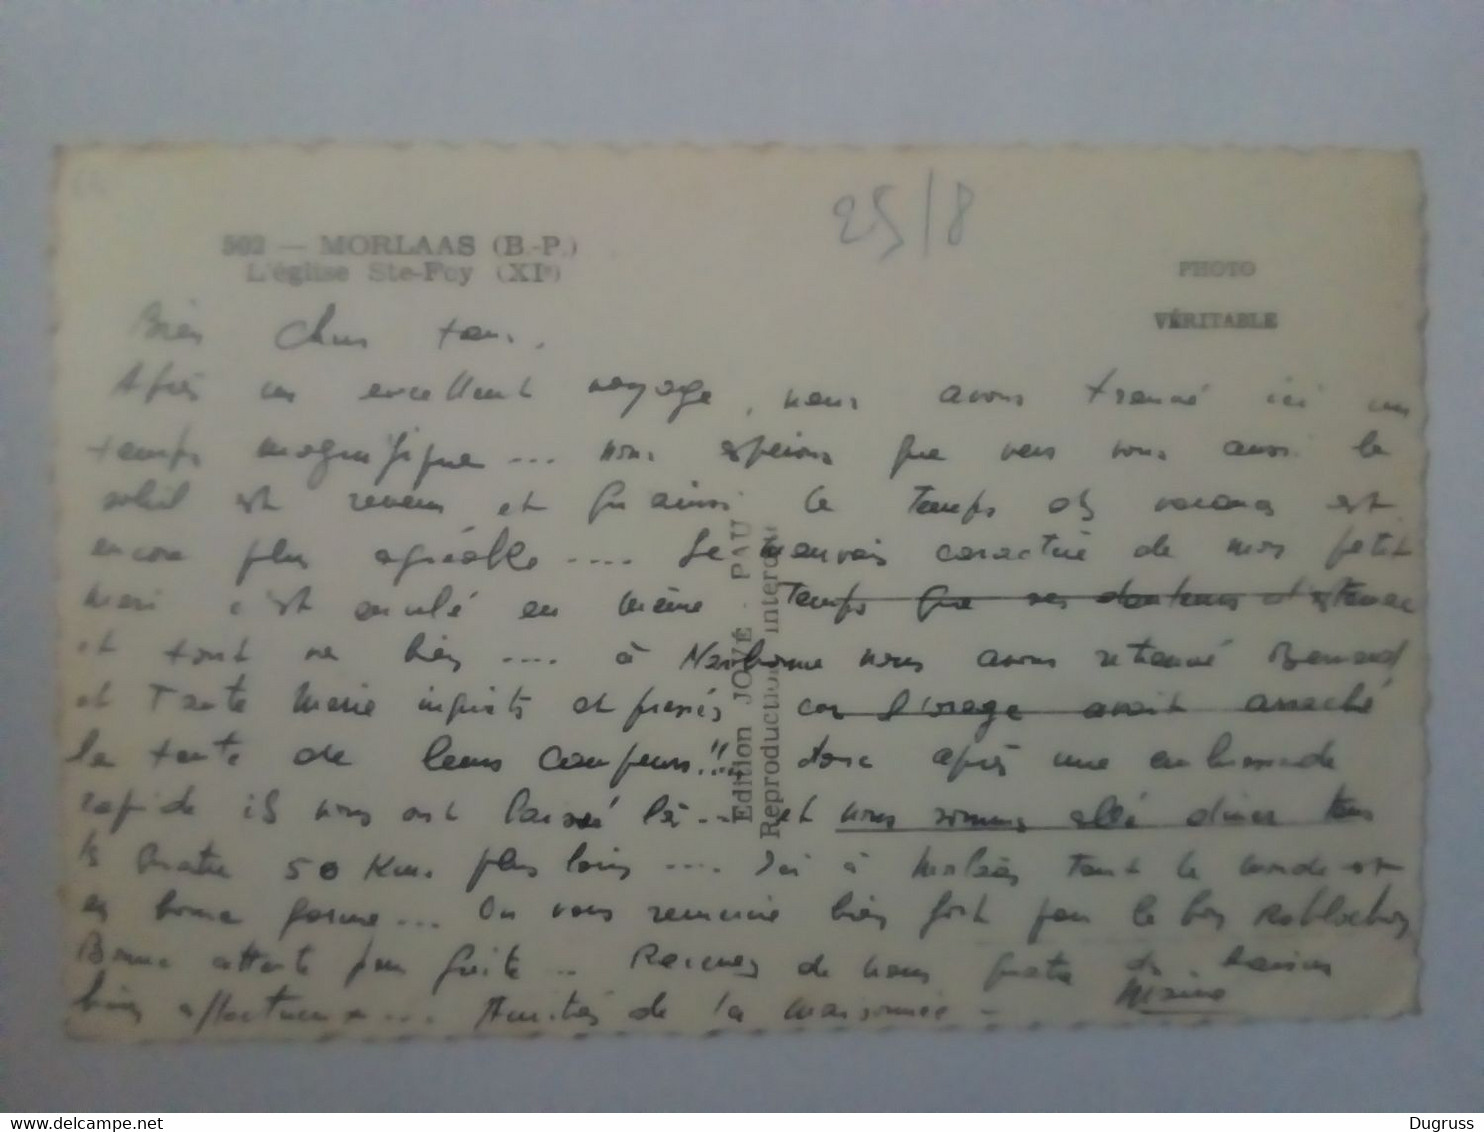 25/8
502 — MORLAAS (B.-P.)
L'église Ste-Foy (XIe)
PHOTO
VÉRITABLE
Bien chers tous,
Après un excellent voyage, nous avons trouvé ici un
temps magnifique... nous espérons que vers vous aussi le
soleil est revenu et qu'ainsi le temps des vacances est
encore plus agréable.... Le mauvais caractère de mon petit
mari s'est en même temps que ses douleurs d'estomac
et tout va bien.... à Narbonne nous avons retrouvé Bernard
et Tante Marie inquiets et pressés car l'orage avait arraché
la tente de leurs campeurs!!! donc après une embrassade
rapide ils nous ont laissé là... et nous sommes allé diner tous
les quatre 50 Km. plus loin.... Ici à Morlaàs tout le monde est
en bonne forme... On vous remercie bien fort pour le bon Reblochon
Bonne attente pour Recevez de nous quatre de baisers
bien affectueux... Amitiés de la maisonnée -
Edition JOVÉ - PAU
Reproduction interdite
Dugruss